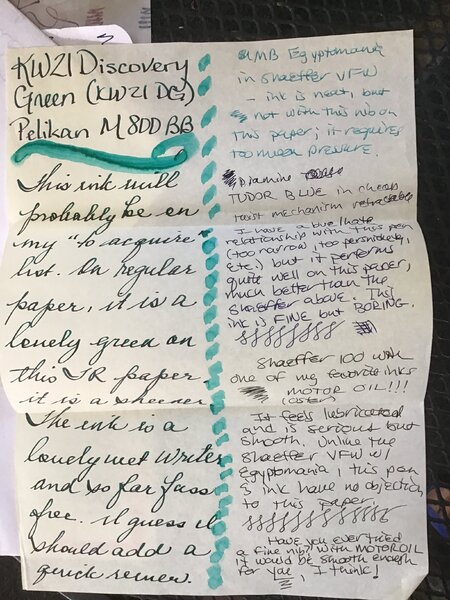 KWZI Discovery
Green (KWZI DG)
Pelikan M800 BB
This ink will
probably be on
my "to acquire
list. On regular
paper, it is a
lovely green on
this TR paper
it is a sheener
The ink is a
lovely wet writer
and so far fuss
free. I guess I
should add a
quick review.
MB Egyptomania
in Sheaffer VFW
- ink is neat, but
not with this nib on
this paper; it requires
too much pressure.
Diamine
TUDOR BLUE in cheap
twist mechanism retractable
I have a love/hate
relationship with this pen
(too narrow, too persnickety,
etc.) but it performs
quite well on this paper,
much better than the
Sheaffer above. This
ink is FINE but BORING.
Sheaffer 100 with
one of my favorite inks
MOTOR OIL!!!
It feels lubricated
and is serious but
smooth. Unlike the
Sheaffer VFW w/
Egyptomania, this pen
& ink have no objection
to this paper.
Have you ever tried
a fine nib? With MOTOR OIL
it would be smooth enough
for you, I think!